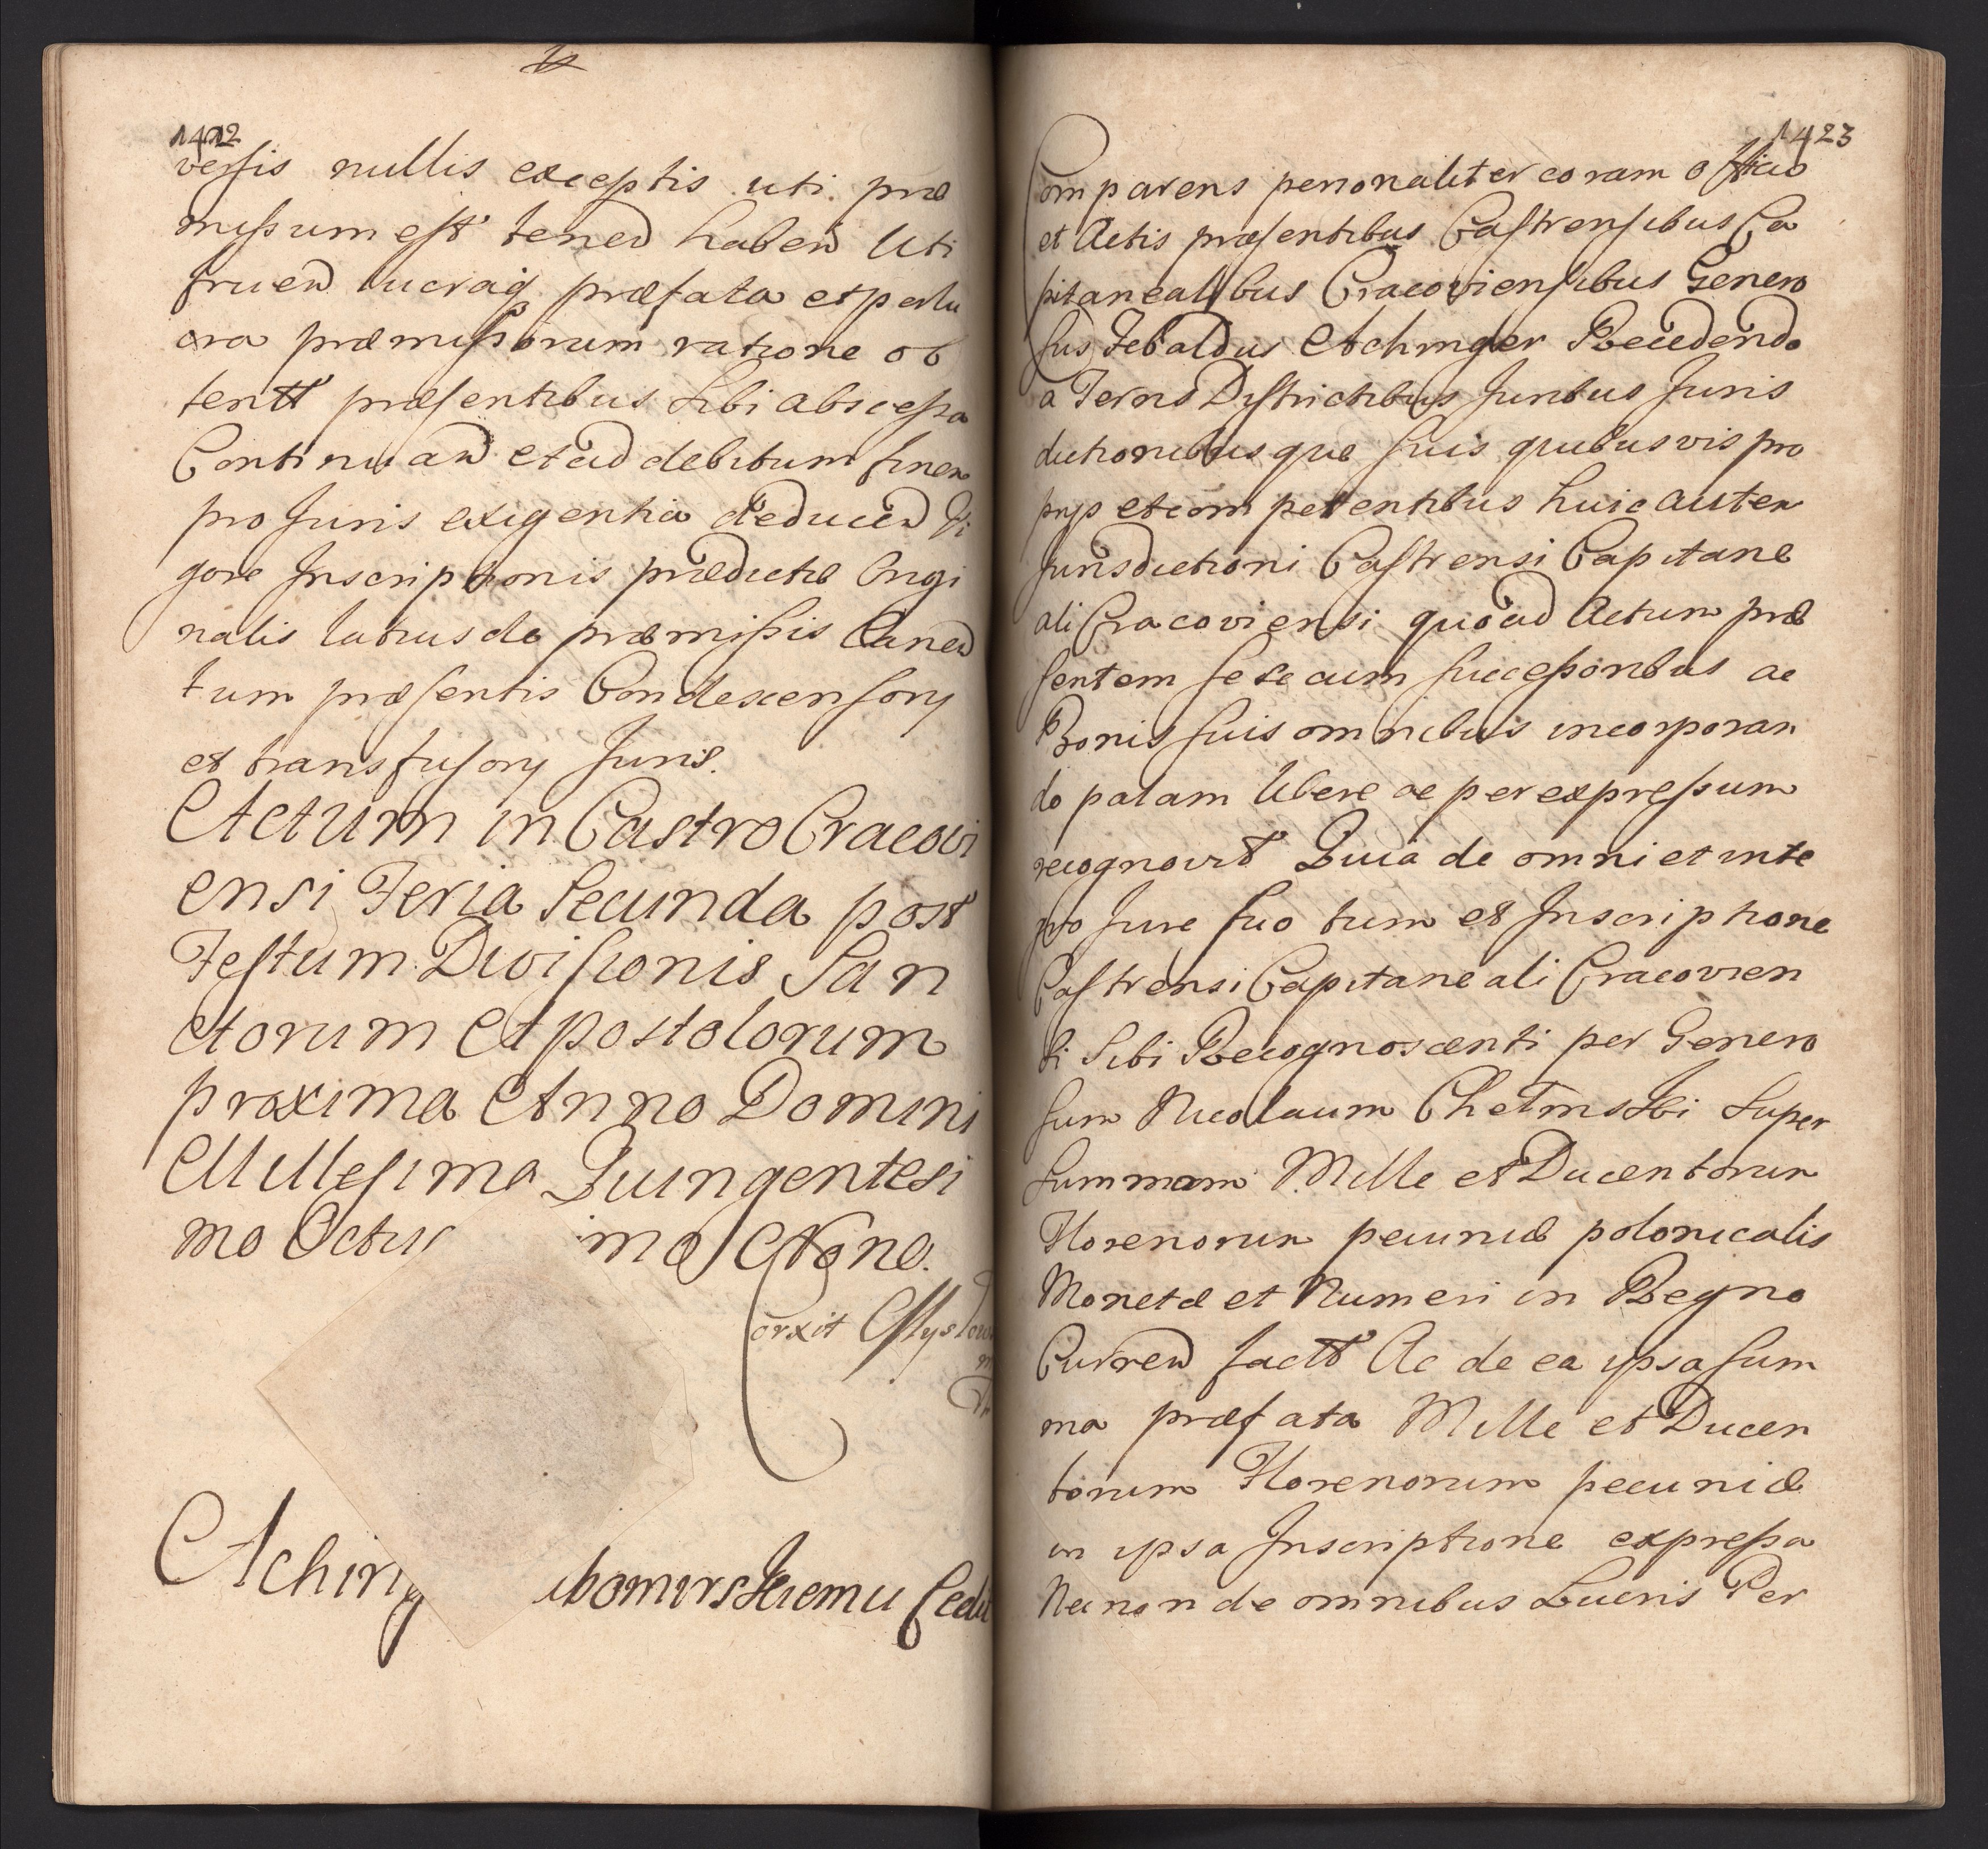 1412
versis nullis exceptis uti præ
missum est tened habend Uti
fruend lucraq præfata et perlu
cra præmissorum ratione ob
tentt præsentibus sibi abscessa
Continuand et ad debitum finem
pro Juris exigentia deducend Vi
gore Inscriptionis prædictæ Origi
nalis latius de præmissis Caned
tum præsentis Condescensorij
et transfusorij Juris.
Actum in Castro Cracovi
ensi Feria Secunda post
Festum Divisionis San
ctorum Apostolorum
proxima Anno Domini
Millesimo Quingentesi
mo Octu imo Nono.
Corxit
Aching ubomirskiemu Cedit
1423
Comparens personaliter coram Officio
et Actis præsentibus Castrensibus Ca
pitanealibus Cracoviensibus Genero
sus Sebaldus Achinger Recedendo
a Terris Districtibus Juribus Juris
dictionibusque suis quibusvis pro
prijs et competentibus huic autem
Jurisdictioni Castrensi Capitane
ali Cracoviensi quoad Actum præ
sentem sese cum successoribus ac
Bonis suis omnibus incorporan
do palam libere ac per expressum
recognovit Quia de omni et inte
gro Jure suo tum et Inscriptione
Castrensi Capitaneali Cracovien
si Sibi Recognoscenti per Genero
sum Nicolaum Chełmski super
summam Mille et Ducentorum
Florenorum pecuniæ polonicalis
Monetæ et Numeri in Regno
Currend factt Ac de ea ipsa sum
ma præfata Mille et Ducen
torum Florenorum pecuniæ
in ipsa Inscriptione expressa
Necnon de omnibus Lucris Per